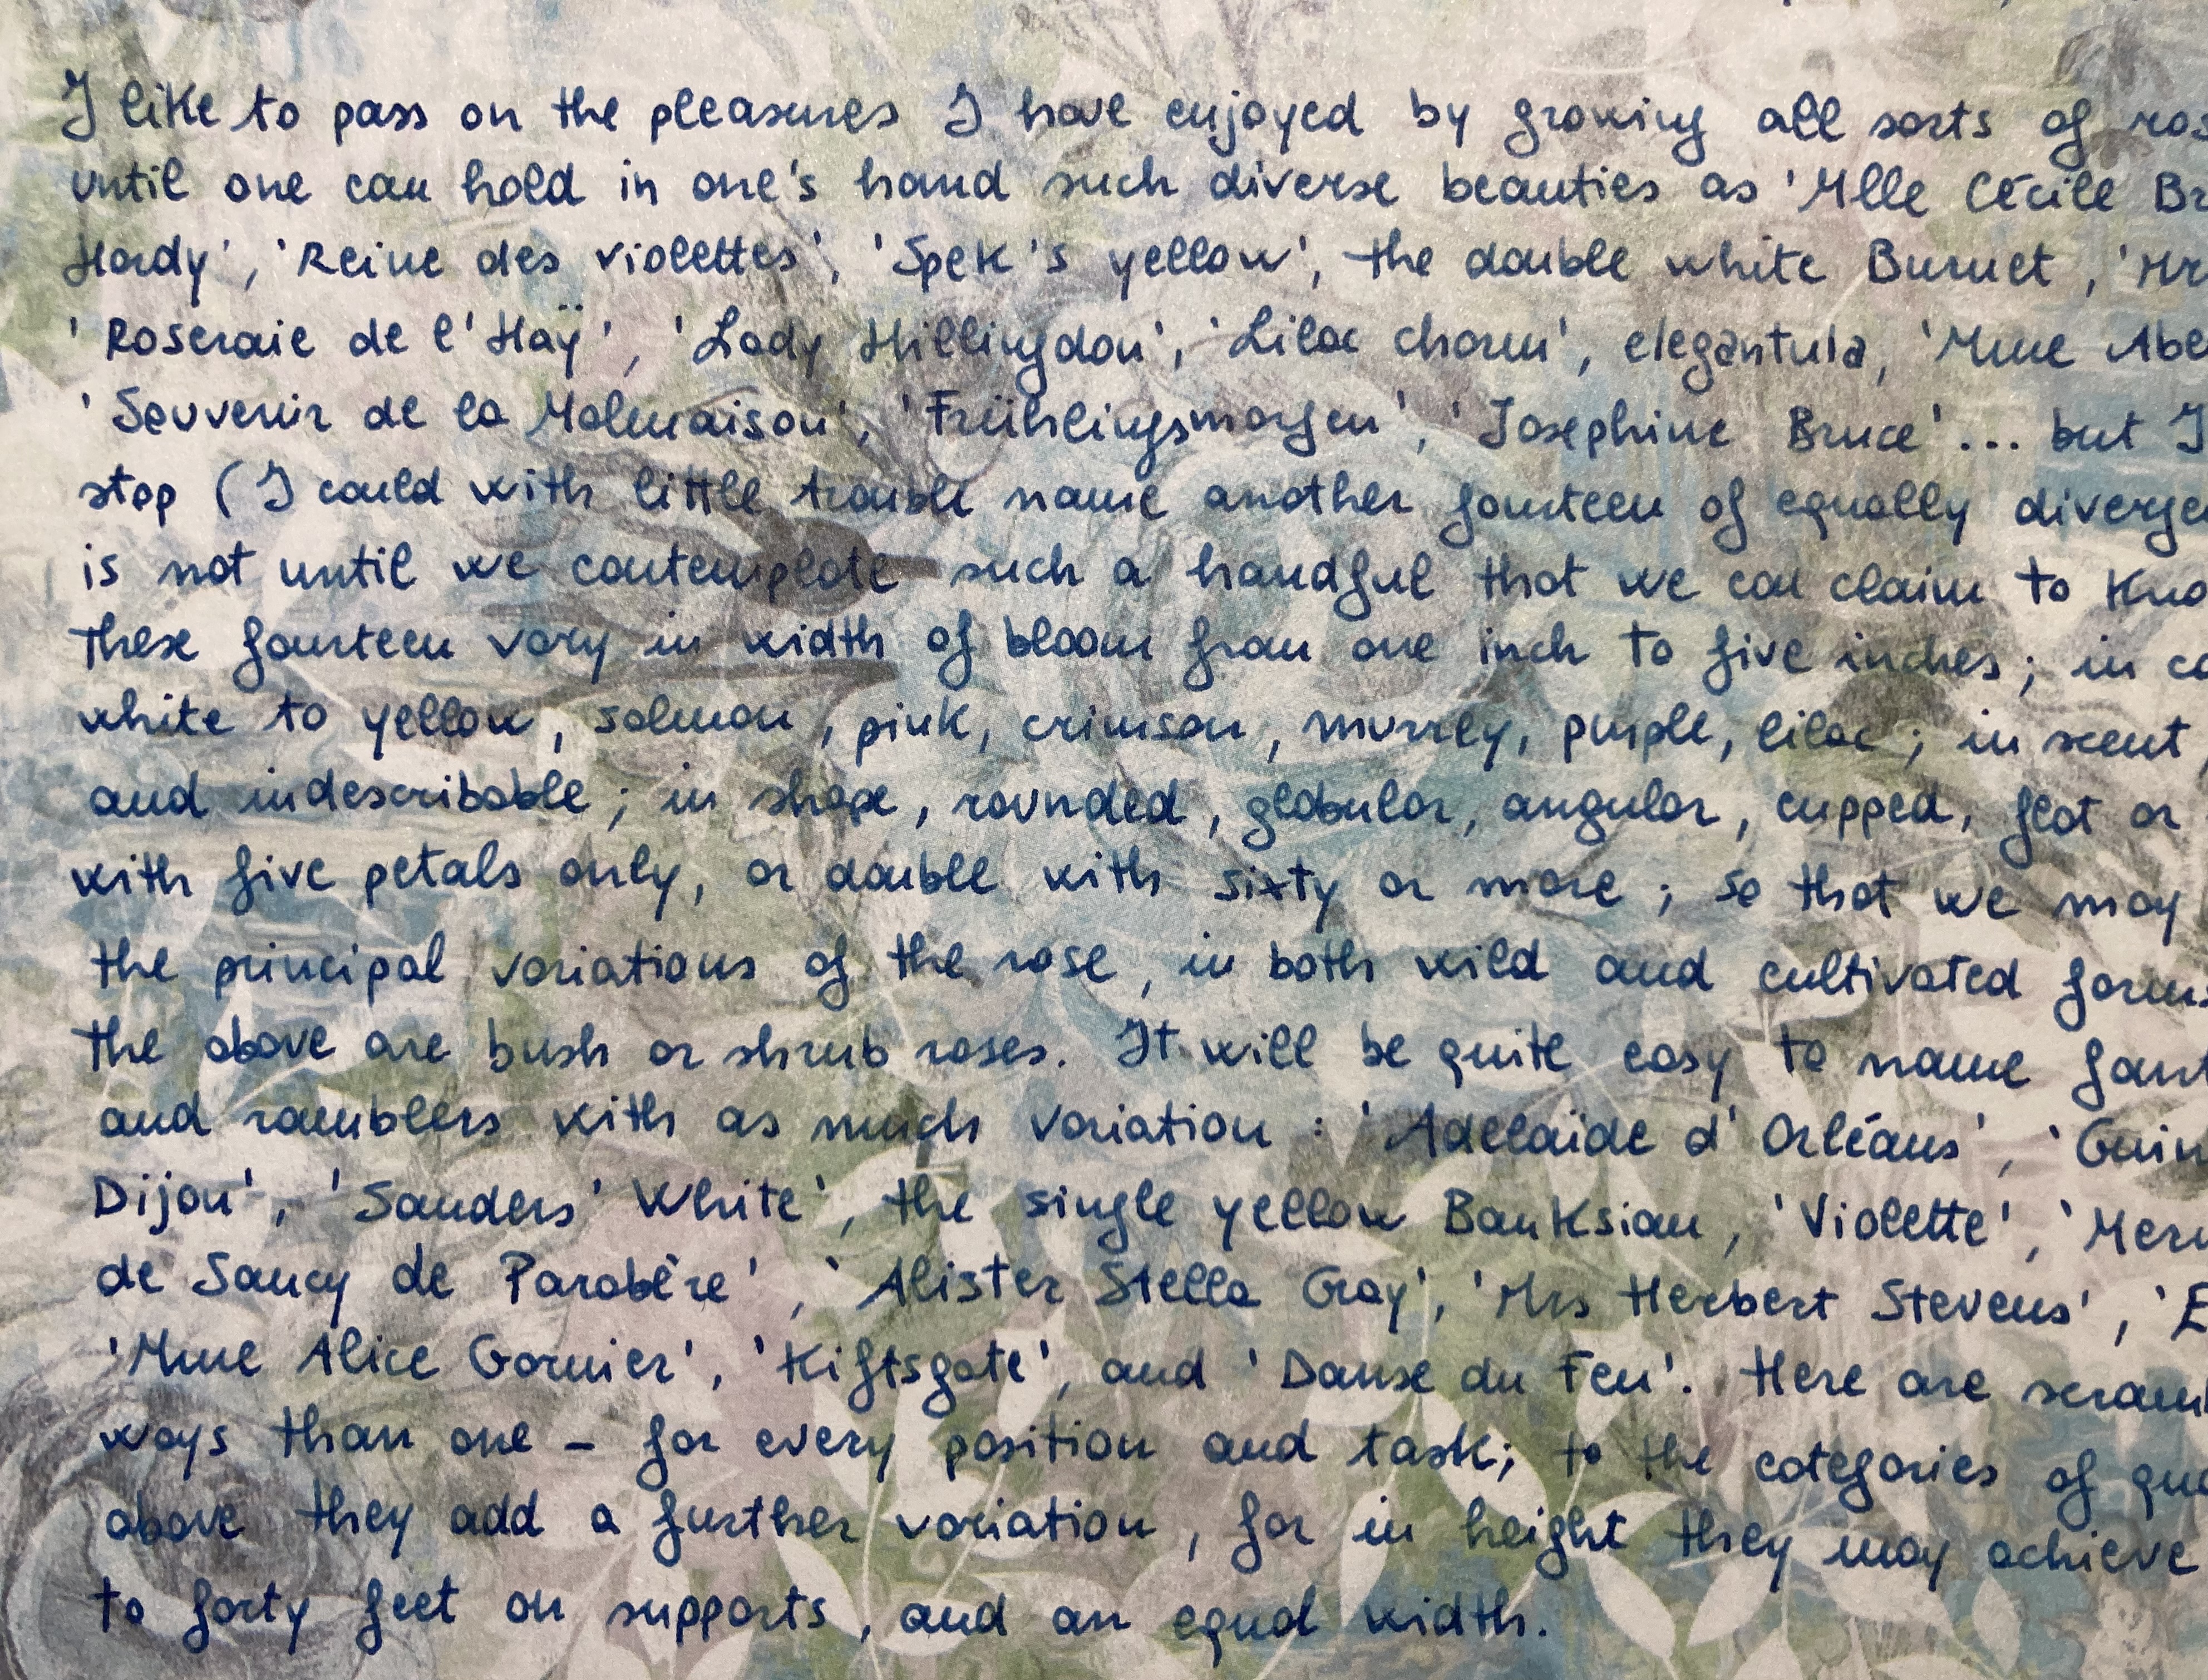 I like to pass on the pleasures I have enjoyed by growing all sorts of ros
until one can hold in one's hand such diverse beauties as 'Mlle Cécile Br
Hardy', 'Reine des violettes', 'Spek's yellow', the double white Burnet, 'Mr
'Roseraie de l'Haÿ', 'Lady Hillingdon', 'Lilac charm', elegantula, 'Mme Abe
'Souvenir de la Malmaison', 'Frühlingsmorgen', 'Josephine Bruce'... but I
stop (I could with little trouble name another fourteen of equally diverge
is not until we contemplate such a handful that we can claim to kno
These fourteen vary in width of bloom from one inch to five inches; in co
white to yellow, salmon, pink, crimson, murrey, purple, lilac; in scent,
and indescribable; in shape, rounded, globular, angular, cupped, flat or
with five petals only, or double with sixty or more; so that we may
the principal variations of the rose, in both wild and cultivated forms
the above are bush or shrub roses. It will be quite easy to name fourt
and ramblers with as much variation: 'Adelaïde d'Orléans', 'Guin
Dijon', 'Sanders' White', the single yellow Banksian, 'Violette', 'Merm
de Sancy de Parabère', 'Alister Stella Gray', 'Mrs Herbert Stevens', 'E
'Mme Alice Garnier', 'Kiftsgate', and 'Danse du Feu'. Here are scram
ways than one – for every position and task; to the categories of qua
above they add a further variation, for in height they may achieve
to forty feet on supports, and an equal width.